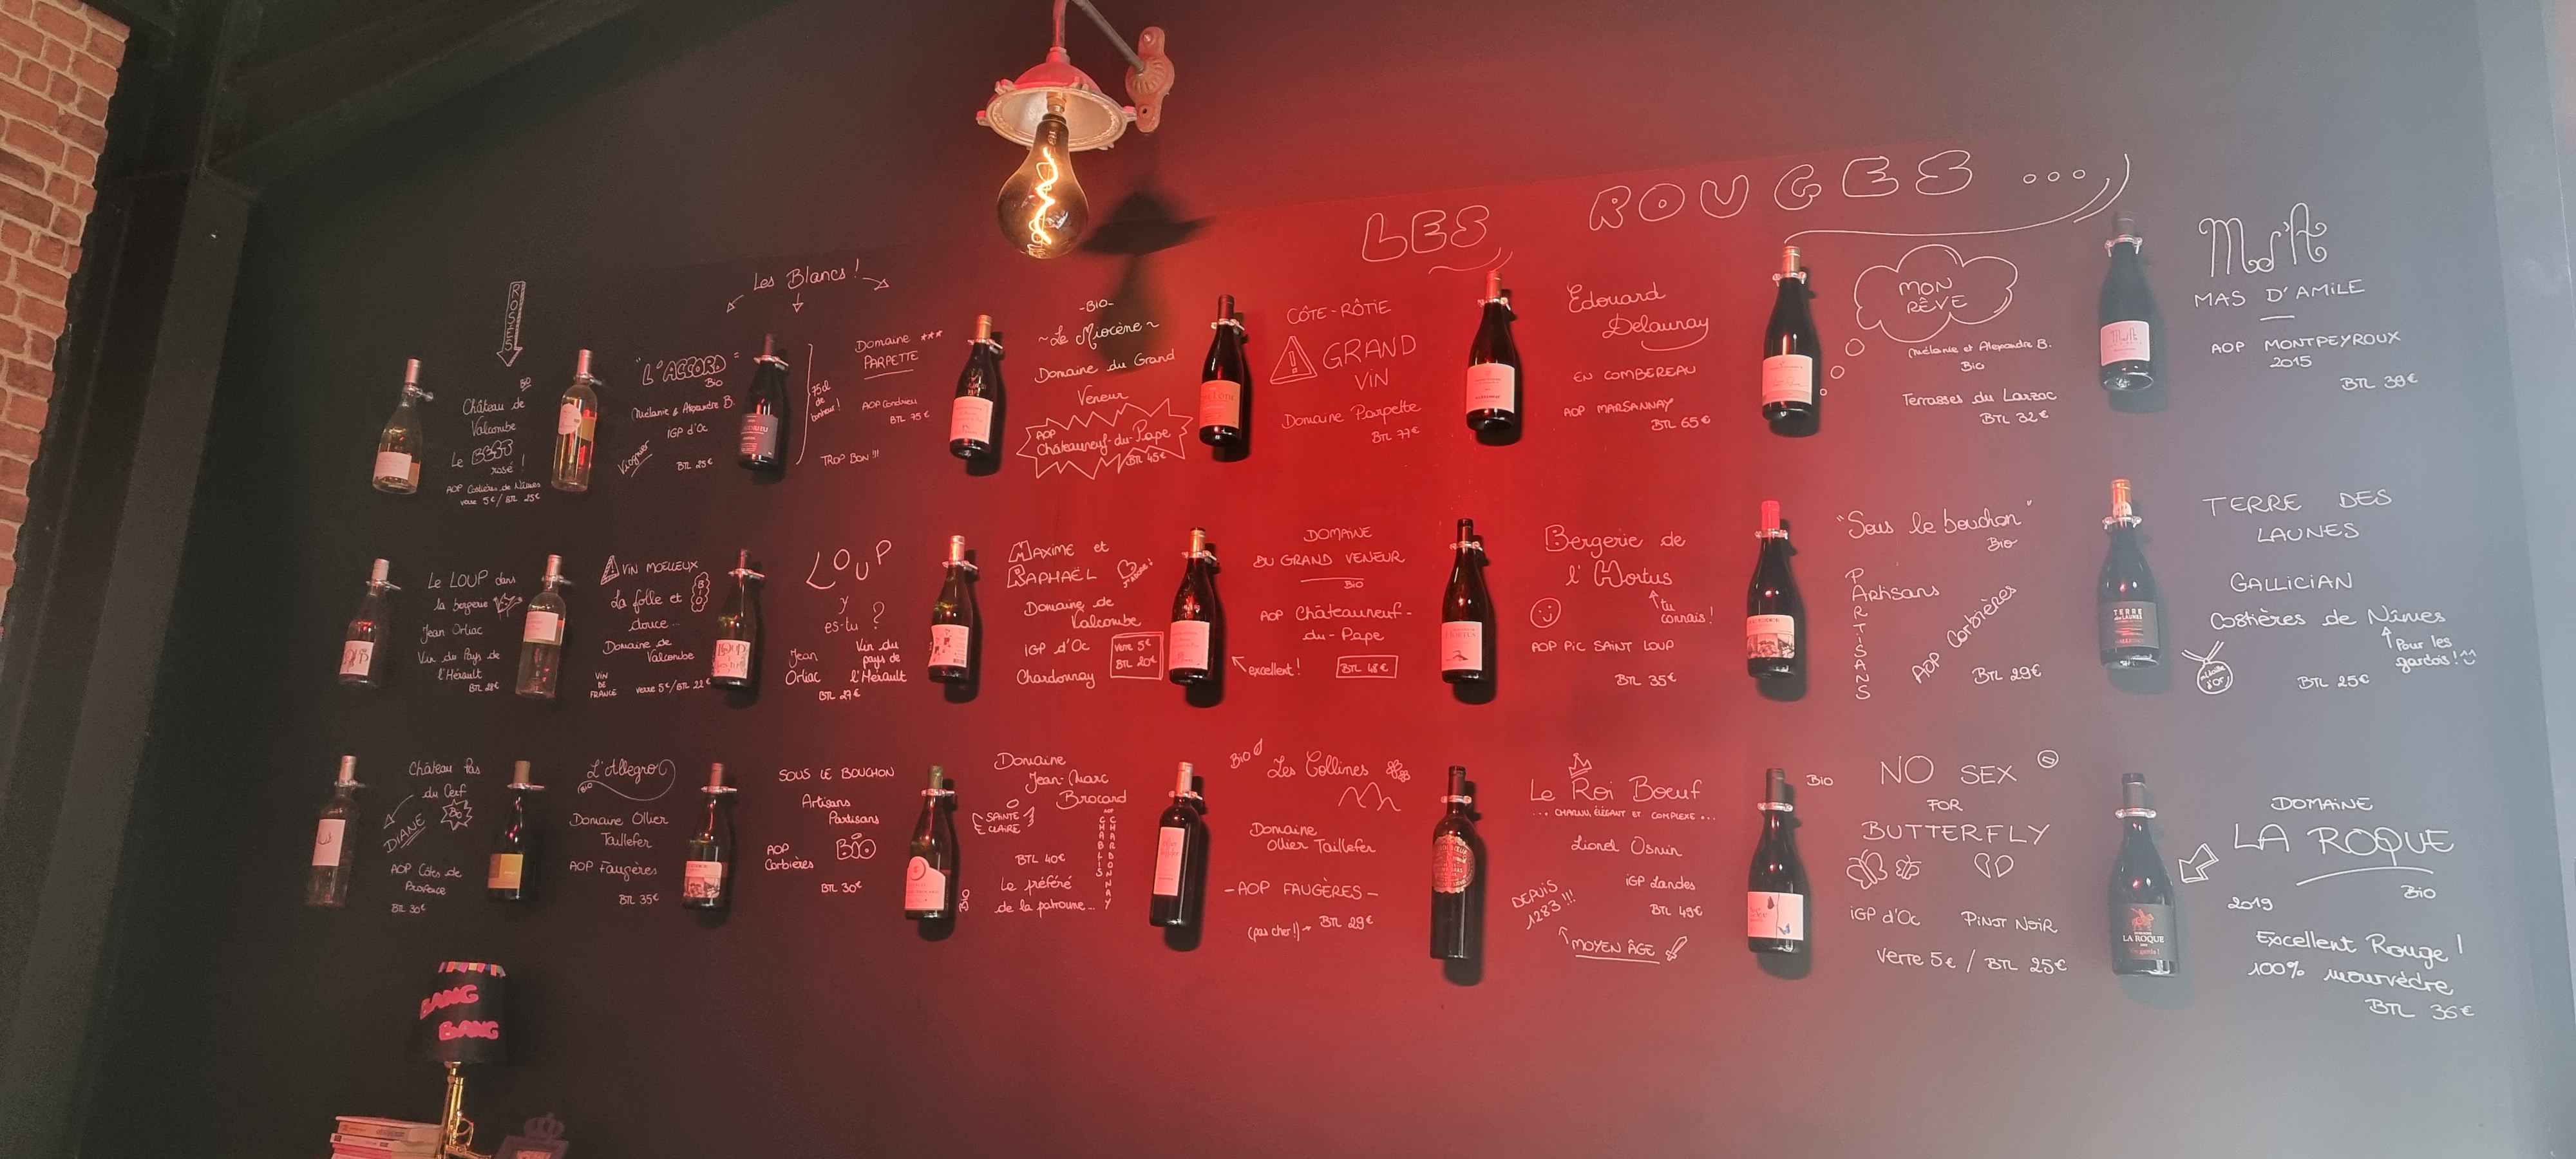 LES ROUGES ...
Les Blancs !
ROSÉS
BIO
Château de
Valcombe
Le
rosé !
AOP Costières de Nîmes
verre 5€ / BTL 25€
"L'ACCORD"
Bio
Mélanie & Alexandre B.
IGP d'Oc
Viognier
BTL 25€
75cl
de
bonheur !
Domaine ***
PARPETTE
AOP Condrieu
BTL 75€
TROP BON !!!
-Bio-
~Le Miocène~
Domaine du Grand
Veneur
AOP
Châteauneuf-du-Pape
BTL 45€
CÔTE-RÔTIE
! GRAND
VIN
Domaine Parpette
BTL 77€
Edouard
Delaunay
EN COMBEREAU
AOP MARSANNAY
BTL 65€
MON
RÊVE
Mélanie et Alexandre B.
Bio
Terrasses du Larzac
BTL 32€
Ms'A
MAS D'AMILE
AOP MONTPEYROUX
2015
BTL 39€
Le LOUP dans
la bergerie
Jean Orliac
Vin du Pays de
l'Hérault
BTL 28€
! VIN MOELLEUX
La folle et
douce...
BIO
Domaine de
Valcombe
VIN
DE
FRANCE
verre 5€/BTL 22€
LOUP
y
es-tu ?
Jean
Orliac
Vin du
pays de
l'Hérault
BTL 27€
MAXIME et
RAPHAËL
J'adore !
Domaine de
Valcombe
IGP d'Oc
Chardonnay
verre 5€
BTL 20€
DOMAINE
DU GRAND VENEUR
BIO
AOP Châteauneuf-
du-Pape
excellent !
BTL 48€
Bergerie de
l'Hortus
tu
connais !
AOP PIC SAINT LOUP
BTL 35€
"Sous le bouchon"
Bio
PARTISANS
Artisans
AOP Corbières
BTL 29€
TERRE DES
LAUNES
GALLICIAN
Costières de Nîmes
Pour les
gardois !
médaille
d'OR
BTL 25€
TERRE
des LAUNES
Château Pas
du Cerf
Bio
DIANE
AOP Côtes de
Provence
BTL 30€
L'Allegro
BIO
Domaine Ollier
Taillefer
AOP Faugères
BTL 35€
SOUS LE BOUCHON
Artisans
Partisans
AOP
Corbières
BIO
BTL 30€
Domaine
Jean-Marc
Brocard
SAINTE
CLAIRE
AOP CHABLIS
CHARDONNAY
BTL 40€
Bio
Le préféré
de la patronne...
Bio
Les Collines
Domaine
Ollier Taillefer
-AOP FAUGÈRES-
(pas cher !) → BTL 29€
Le Roi Boeuf
... CHARNU, ÉLÉGANT ET COMPLEXE ...
Lionel Osmin
IGP Landes
BTL 49€
DEPUIS
1283 !!!
MOYEN ÂGE
Bio
NO SEX
FOR
BUTTERFLY
IGP d'Oc PINOT NOIR
Verre 5€ / BTL 25€
DOMAINE
LA ROQUE
Bio
2019
Excellent Rouge !
100% mourvèdre
BTL 36€
LA ROQUE
BANG
BANG